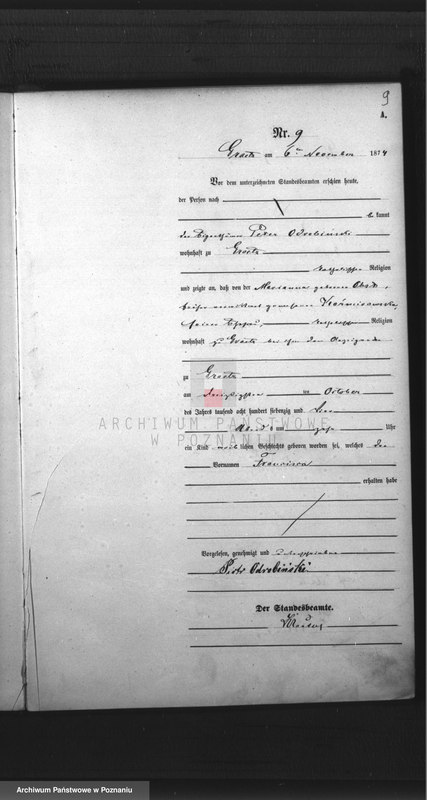 9
A.
Nr. 9
Graetz am 6ten November 1874
Vor dem unterzeichneten Standesbeamten erschien heute,
der Person nach
be kannt
der Eigenthümer Peter Odrobiński
wohnhaft zu Graetz
katholischer Religion
und zeigte an, daß von der Marianna geborne
früher verwittwet gewesene
seiner Ehefrau, katholischer Religion
wohnhaft zu Graetz bei ihm dem Anzeigenden
zu Graetz
am dreißigsten ten October
des Jahres tausend acht hundert siebenzig und vier
Abends um Uhr
ein Kind weib lichen Geschlechts geboren worden sei, welches den
Vornamen Franciszca
erhalten habe
Vorgelesen, genehmigt und unterschrieben
Piotr Odrobiński
Der Standesbeamte.
ARCHIWUM PAŃSTWOWE
W POZNANIU
Archiwum Państwowe w Poznaniu